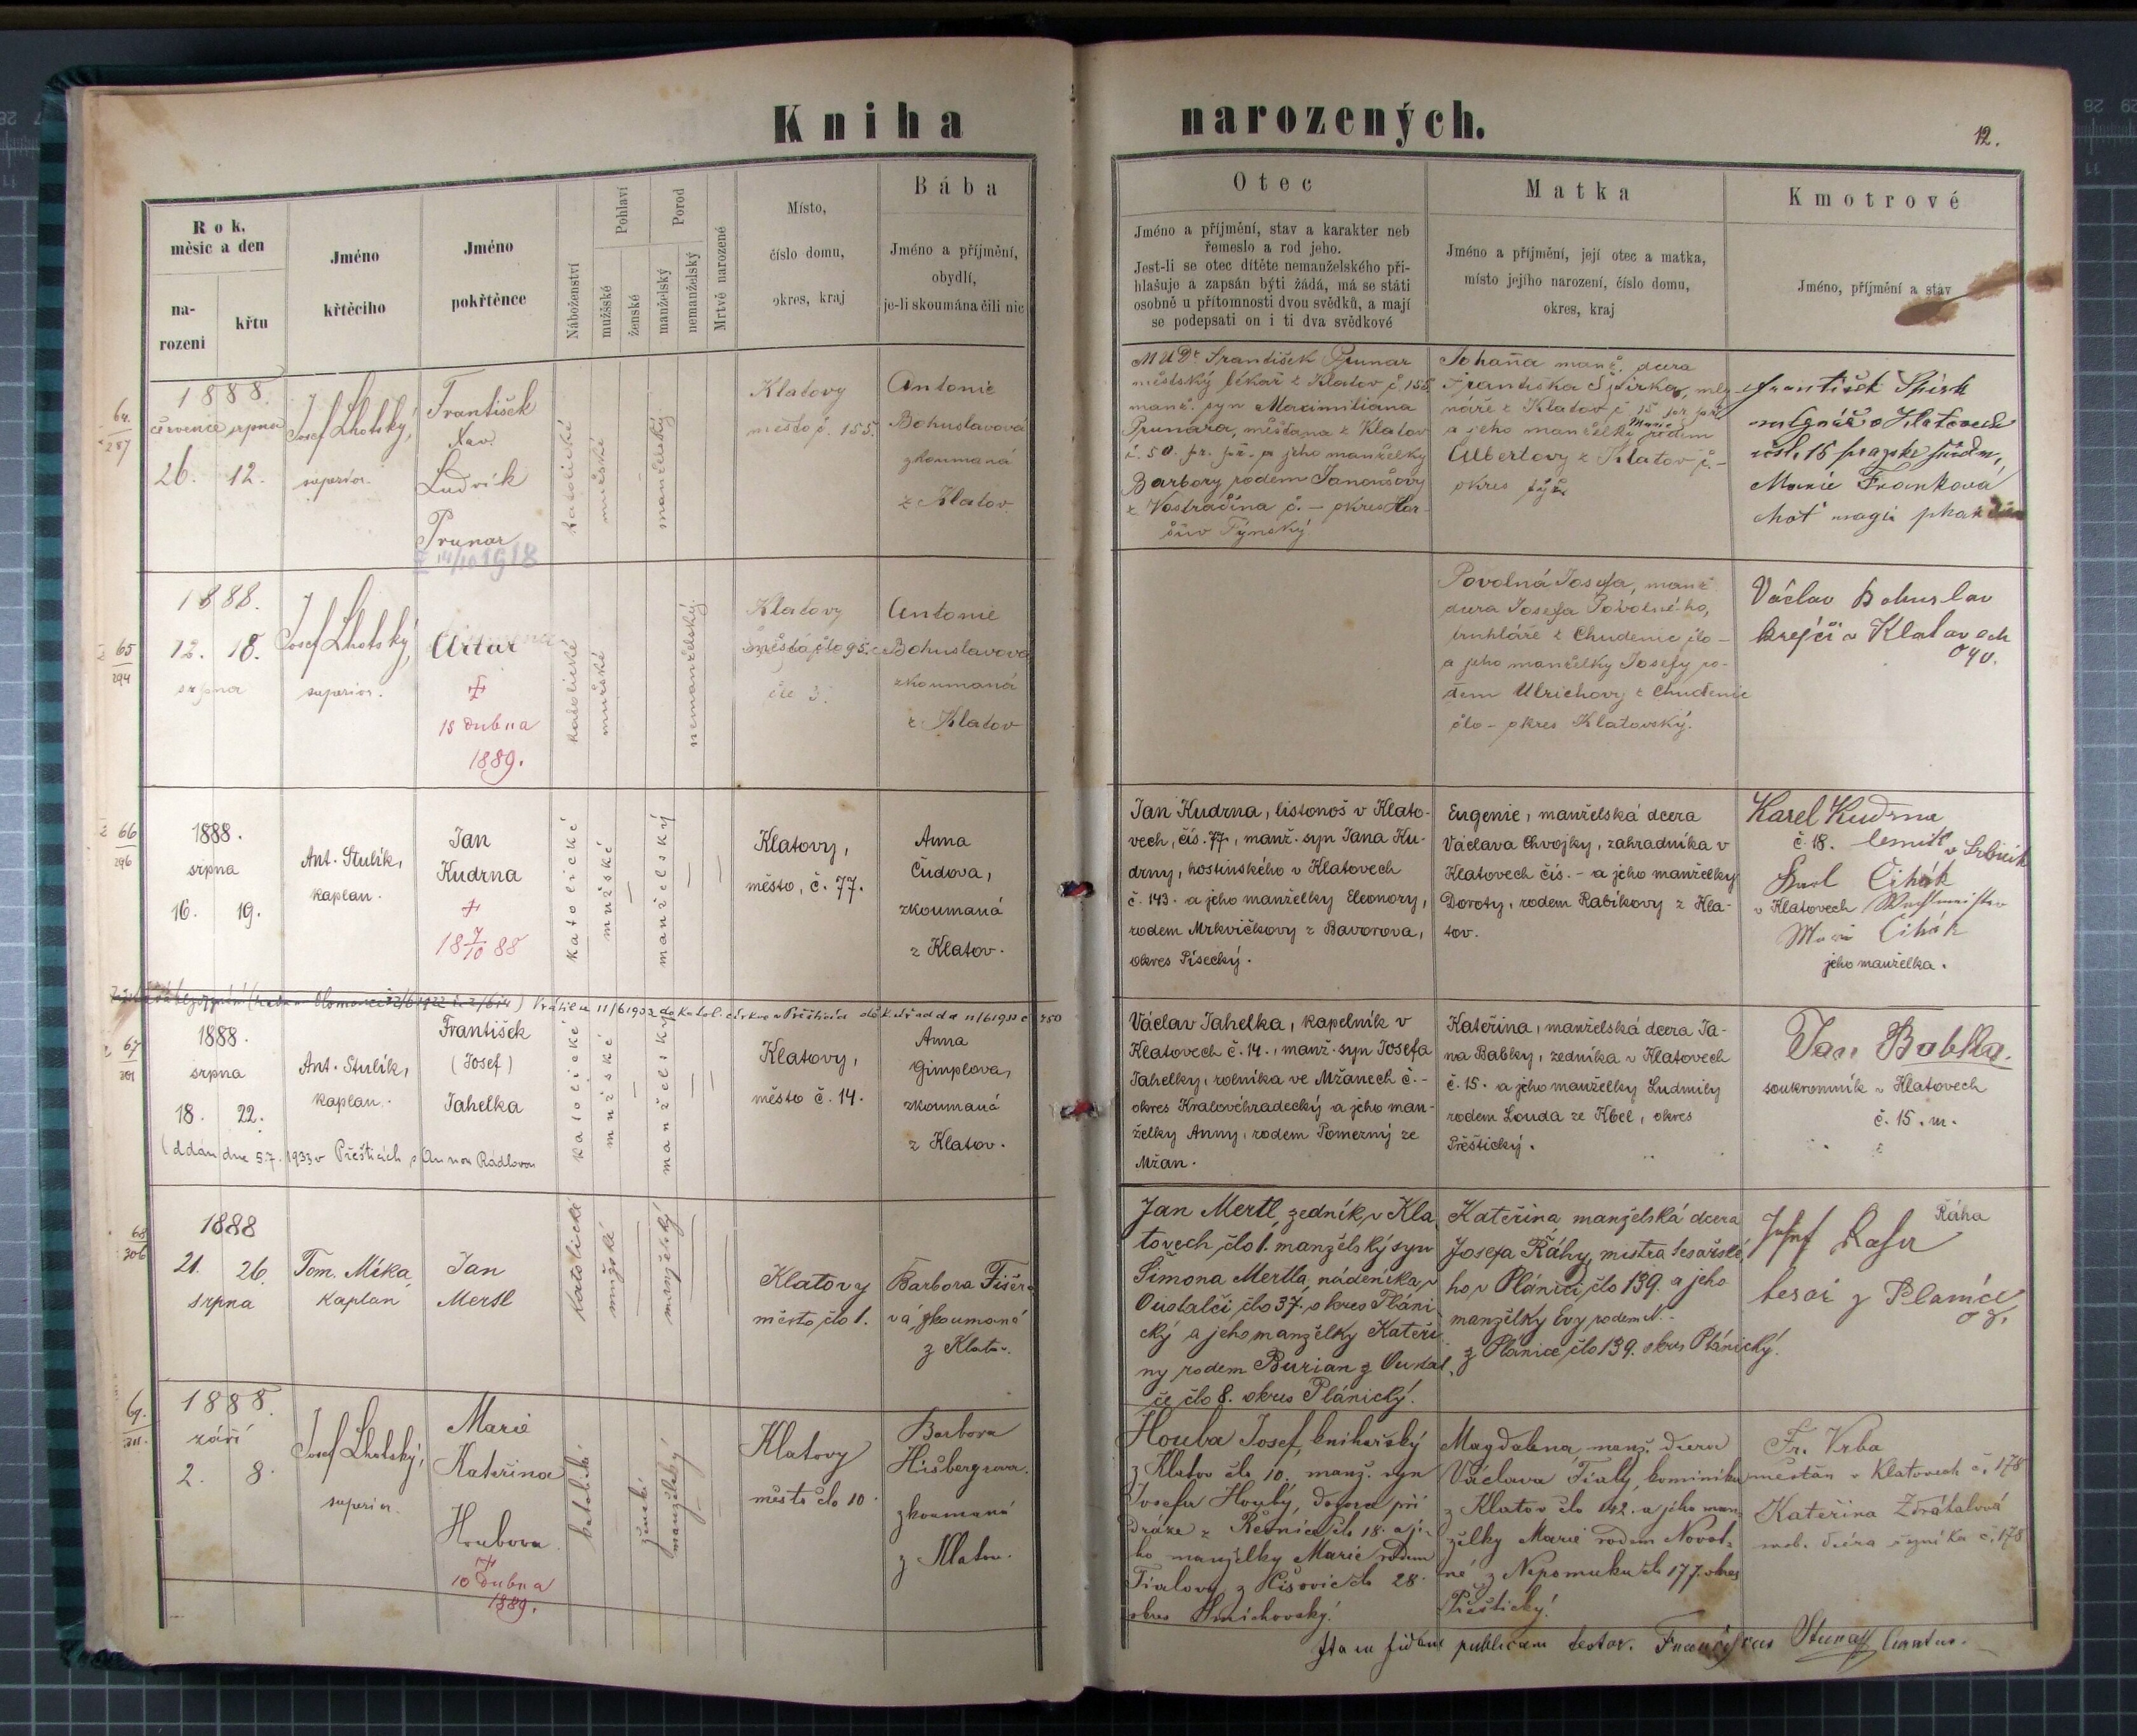 Kniha narozených.
12.
Rok, měsíc a den
na-
rození
křtu
Jméno
křtěcího
Jméno
pokřtěnce
Náboženství
Pohlaví
mužšské
ženské
Porod
manželský
nemanželský
Mrtvě narozené
Místo,
číslo domu,
okres, kraj
Bába
Jméno a příjmění,
obydlí,
je-li skoumána čili nic
Otec
Jméno a příjmění, stav a karakter neb
řemeslo a rod jeho.
Jest-li se otec dítěte nemanželského při-
hlašuje a zapsán býti žádá, má se státi
osobně u přítomnosti dvou svědků, a mají
se podepsati on i ti dva svědkové
Matka
Jméno a příjmění, její otec a matka,
místo jejího narození, číslo domu,
okres, kraj
Kmotrové
Jméno, příjmění a stav
64.
287
1888.
července srpna
26. 12.
Josef Lhotský,
superior.
František
Xav.
Ludvík
Prunar
14/10 1918
katolické
mužské
manželský
Klatovy
město č. 155.
Antonie
Bohuslavová
zkoumaná
z Klatov
MUDr František Prunar
městský lékař z Klatov č 155
manž. syn Maximiliana
Prunara, měšťana z Klatov
č. 50. pr. př. a jeho manželky
Barbory rodem Janoušovy
z Vostračína č. – okres Hor-
šův Týnský
Johanna manž. dcera
Františka Špirka, mly-
náře z Klatov č 15 pr. př.
a jeho manželky Marie rodem
Albertovy z Klatov č. –
okres týž.
František Špirk
mlynář v Klatovech
čísl. 15 pražské předm,
Marie Franková
choť magi phar
65
294
1888.
12. 18.
srpna
Josef Lhotský,
superior.
Artur
†
15 dubna
1889.
katolické
mužské
nemanželský.
Klatovy
město čto 95.
čte 3.
Antonie
Bohuslavová
zkoumaná
z Klatov
Povolná Josefa, manž
dcera Josefa Povolného,
truhláře z Chudenic čto –
a jeho manželky Josefy ro-
dem Ulrichovy z Chudenic
čto – okres Klatovský.
Václav Bohuslav
krejčí v Klatovech
66
296
1888.
srpna
16. 19.
Ant. Stulík,
kaplan.
Jan
Kudrna
†
18 7/10 88
katolické
mužské
manželský
Klatovy,
město, č. 77.
Anna
Čudova,
zkoumaná
z Klatov.
Jan Kudrna, listonoš v Klato-
vech, čís. 77, manž. syn Jana Ku-
drny, hostinského v Klatovech
č. 143. a jeho manželky Eleonory,
rodem Mrkvičkovy z Bavorova,
okres Písecký.
Eugenie, manželská dcera
Václava Chvojky, zahradníka v
Klatovech čís. – a jeho manželky
Doroty, rodem Rabíkovy z Kla-
tov.
Karel Kudrna
č. 18.
Karl Čihák
v Klatovech Wachtmeister
Marie Čihák
jeho manželka.
Vrátil se 11/6 1933 do katol. církve v Přešticích
67
301
1888.
srpna
18. 22.
Ant. Stulík,
kaplan.
František
(Josef)
Jahelka
katolické
mužské
manželský
Klatovy,
město č. 14.
Anna
Gimplova,
zkoumaná
z Klatov.
Václav Jahelka, kapelník v
Klatovech č. 14., manž. syn Josefa
Jahelky, rolníka ve Mžanech č. –
okres Kralovéhradecký a jeho man-
želky Anny, rodem Pomerný ze
Mžan.
Kateřina, manželská dcera Ja-
na Babky, zedníka v Klatovech
č. 15. a jeho manželky Ludmily
rodem Louda ze Kbel, okres
Přeštický.
Jan Bobka.
soukromník v Klatovech
č. 15. m.
(ddán dne 5.7. 1933 v Přešticích s Annou Rádlovou
68
306
1888
21. 26.
srpna
Tom. Míka,
kaplan
Jan
Mertl
katolické
mužské
manželský
Klatovy
město, čto 1.
Barbora Fišero-
vá, zkoumaná
z Klatov.
Jan Mertl, zedník, v Kla-
tovech, čto 1. manželský syn
Šimona Mertla, nádeníka, v
Oustalči, čto 37, okres Pláni-
cký a jeho manželky Kateři-
ny rodem Burian z Oustal-
če čto 8. okres Plánický.
Kateřina, manželská dcera
Josefa Ráhy, mistra tesařské-
ho v Plánici, čto 139. a jeho
manželky Evy rodem N. –
z Plánice, čto 139. okres Plánický.
Josef Raha
Ráha
tesař z Plánice
69.
311.
1888.
září
2. 8.
Josef Lhotský,
superior.
Marie
Kateřina
Houbova
†
10 dubna
1889.
katolické
ženské
manželský
Klatovy
město čto 10.
Barbora
Hišbergrova.
zkoumaná
z Klatov.
Houba Josef, knihařský
z Klatov čto 10. manž. syn
Josefa Houby, dozorce při
dráze z Řevnic čto 18. a je-
ho manželky Marie rodem
Fialovy z čto 28.
okres Smíchovský.
Magdalena, manž. dcera
Václava Fialy, kominíka
z Klatov čto 142. a jeho man-
želky Marie rodem Novot-
né z Nepomuku čto 177. okres
Přeštický.
Fr. Vrba
měšťan v Klatovech č. 178
Kateřina Zdráhalová
Ita in fidem publicam testor. Franciscus Curatus.